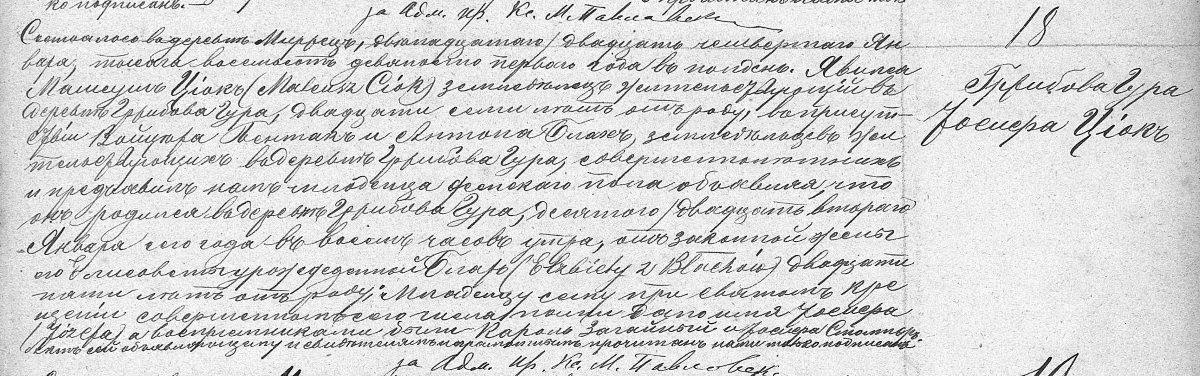 ко подписанъ.
за Адм. пр. Кс. М. Павловск.
18
Состоялось въ деревнѣ Мирзецъ, двѣнадцатаго / двадцать четвертаго Ян-
варя, тысяча восемьсотъ девяносто перваго года въ полдень. Явился
Матеушъ Ціокъ (Mateusz Ciok) земледѣлецъ жительствующій въ
деревнѣ Гррибова Гура, двадцати семи лѣтъ отъ роду, въ присут-
ствіи Войцѣха Вентакъ и Антона Блахъ, земледѣльцевъ жи-
тельствующихъ въ деревнѣ Гррибова Гура, совершеннолѣтнихъ
и предъявилъ намъ младенца женскаго пола объявляя, что
онъ родился въ деревнѣ Гррибова Гура, десятого / двадцать втораго
Января сего года въ восемь часовъ утра, отъ законной жены
его Елисаветы урожденной Блахъ (Elżbiety z Blachów) двадцати
пяти лѣтъ отъ роду; Младенцу сему при святомъ кре-
щеніи совершенномъ сего числа нами дано имя Іосифа
(Józefa) а воспріемниками были Кароль Загайный и Іосифа
актъ сей объявляющему и свидѣтелямъ неграмотнымъ прочитанъ нами только подписанъ
за Адм. пр. Кс. М. Павловск.
Гррибова Гура
Іосифа Ціокъ